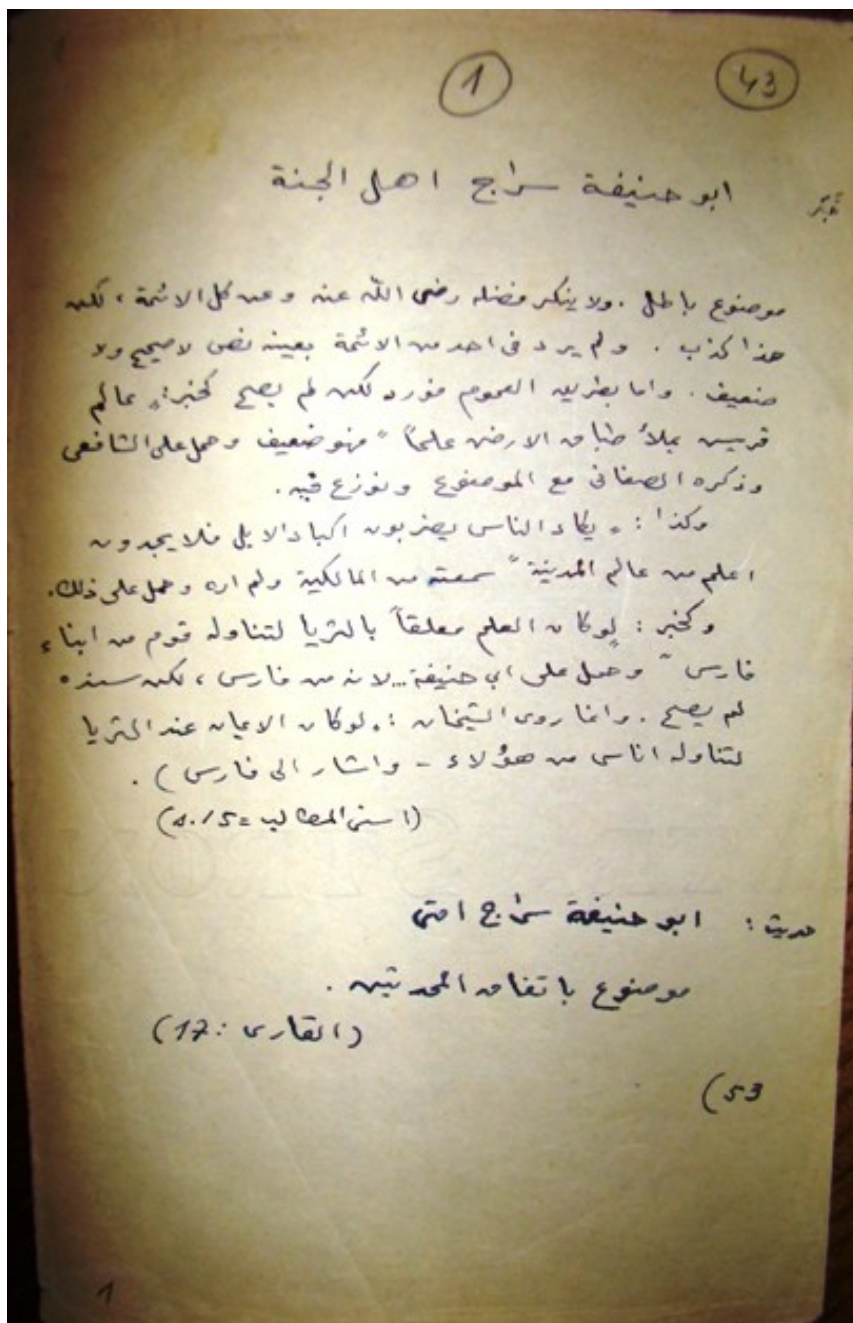 1 43
خبر ابو حنيفة سراج اهل الجنة
موضوع باطل . ولا ينكر فضله رضى الله عنه وعن كل الائمة ، لكن
هذا كذب . ولم يرد فى احد من الائمة بعينه نص لا صحيح ولا
ضعيف . واما بطريق العموم فورد لكن لم يصح كخبر : „ عالم
قريس يملأ طباق الارض علماً “ فهو ضعيف وحمل على الشافعى
وذكره الصغانى مع الموضوع ونوزع فيه .
وكذا : „ يكاد الناس يضربون اكباد الابل فلا يجدون
اعلم من عالم المدينة “ سمعته من المالكية ولم اره وحمل على ذلك .
وكخبر : „ لو كان العلم معلقاً بالثريا لتناوله قوم من ابناء
فارس “ وحمل على ابى حنيفة .. لانه من فارس ، لكن سنده
لم يصح . وانما روى الشيخان : „ لو كان الايمان عند الثريا
لتناوله اناس من هؤلاء - واشار الى فارس ) .
(اسنى المطالب =
حديث : ابو حنيفة سراج امتى
موضوع باتفاق المحدثين .
(القارى : 17)
53)
1